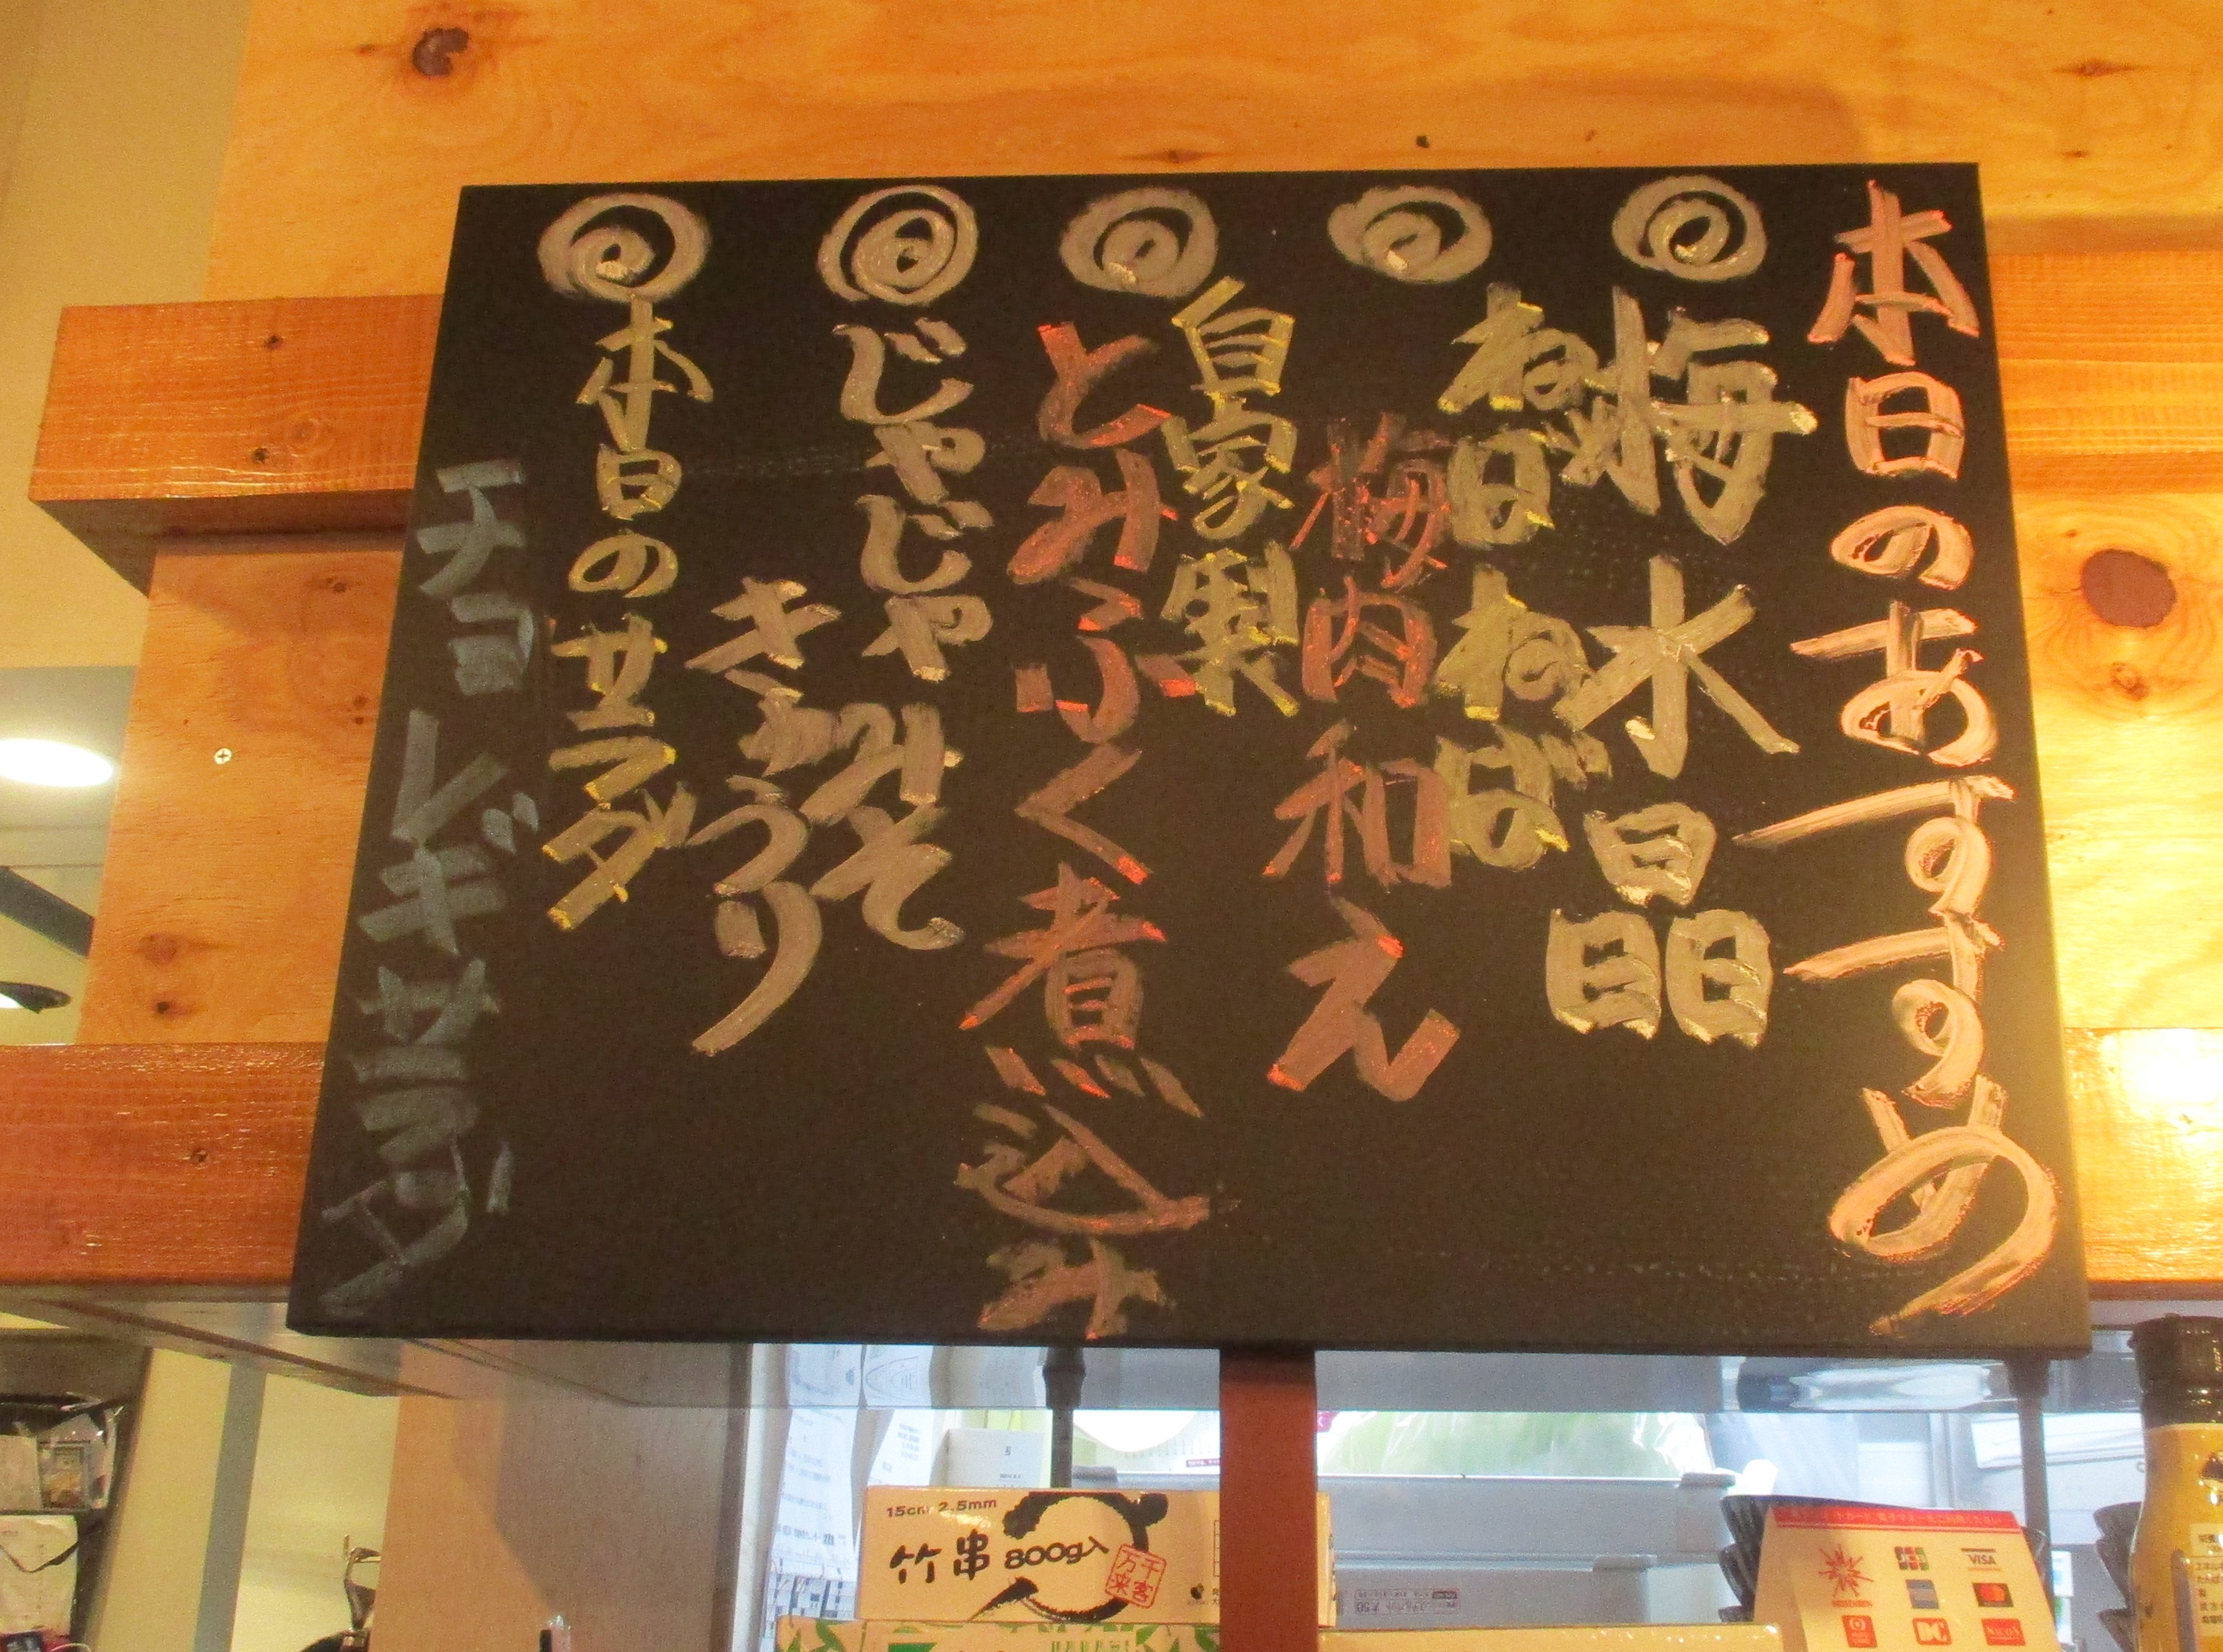 本日のおすすめ
◎梅水晶
◎ねばねば
梅肉和え
◎自家製
とみふく煮込み
◎じゃじゃみそ
きゅうり
◎本日のサラダ
チョレギサラダ
15cm 2.5mm
竹串 800g入
千客
万来
JCB
VISA
DC
NICOS